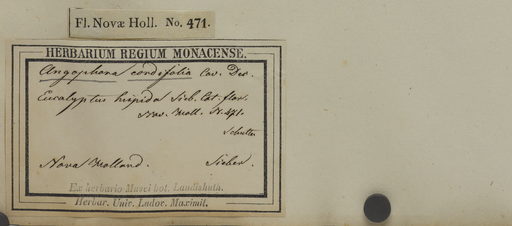 Fl. Novæ Holl. No. 471.
HERBARIUM REGIUM MONACENSE.
Angophora cordifolia Cav. Dec.
Eucalyptus hispida Sieb. Cat. flor.
Nov. Holl. N. 471.
Schultes
Nova Holland. Sieber.
Ex herbario Musei bot. Landishuth.
Herbar. Univ. Ludov. Maximil.